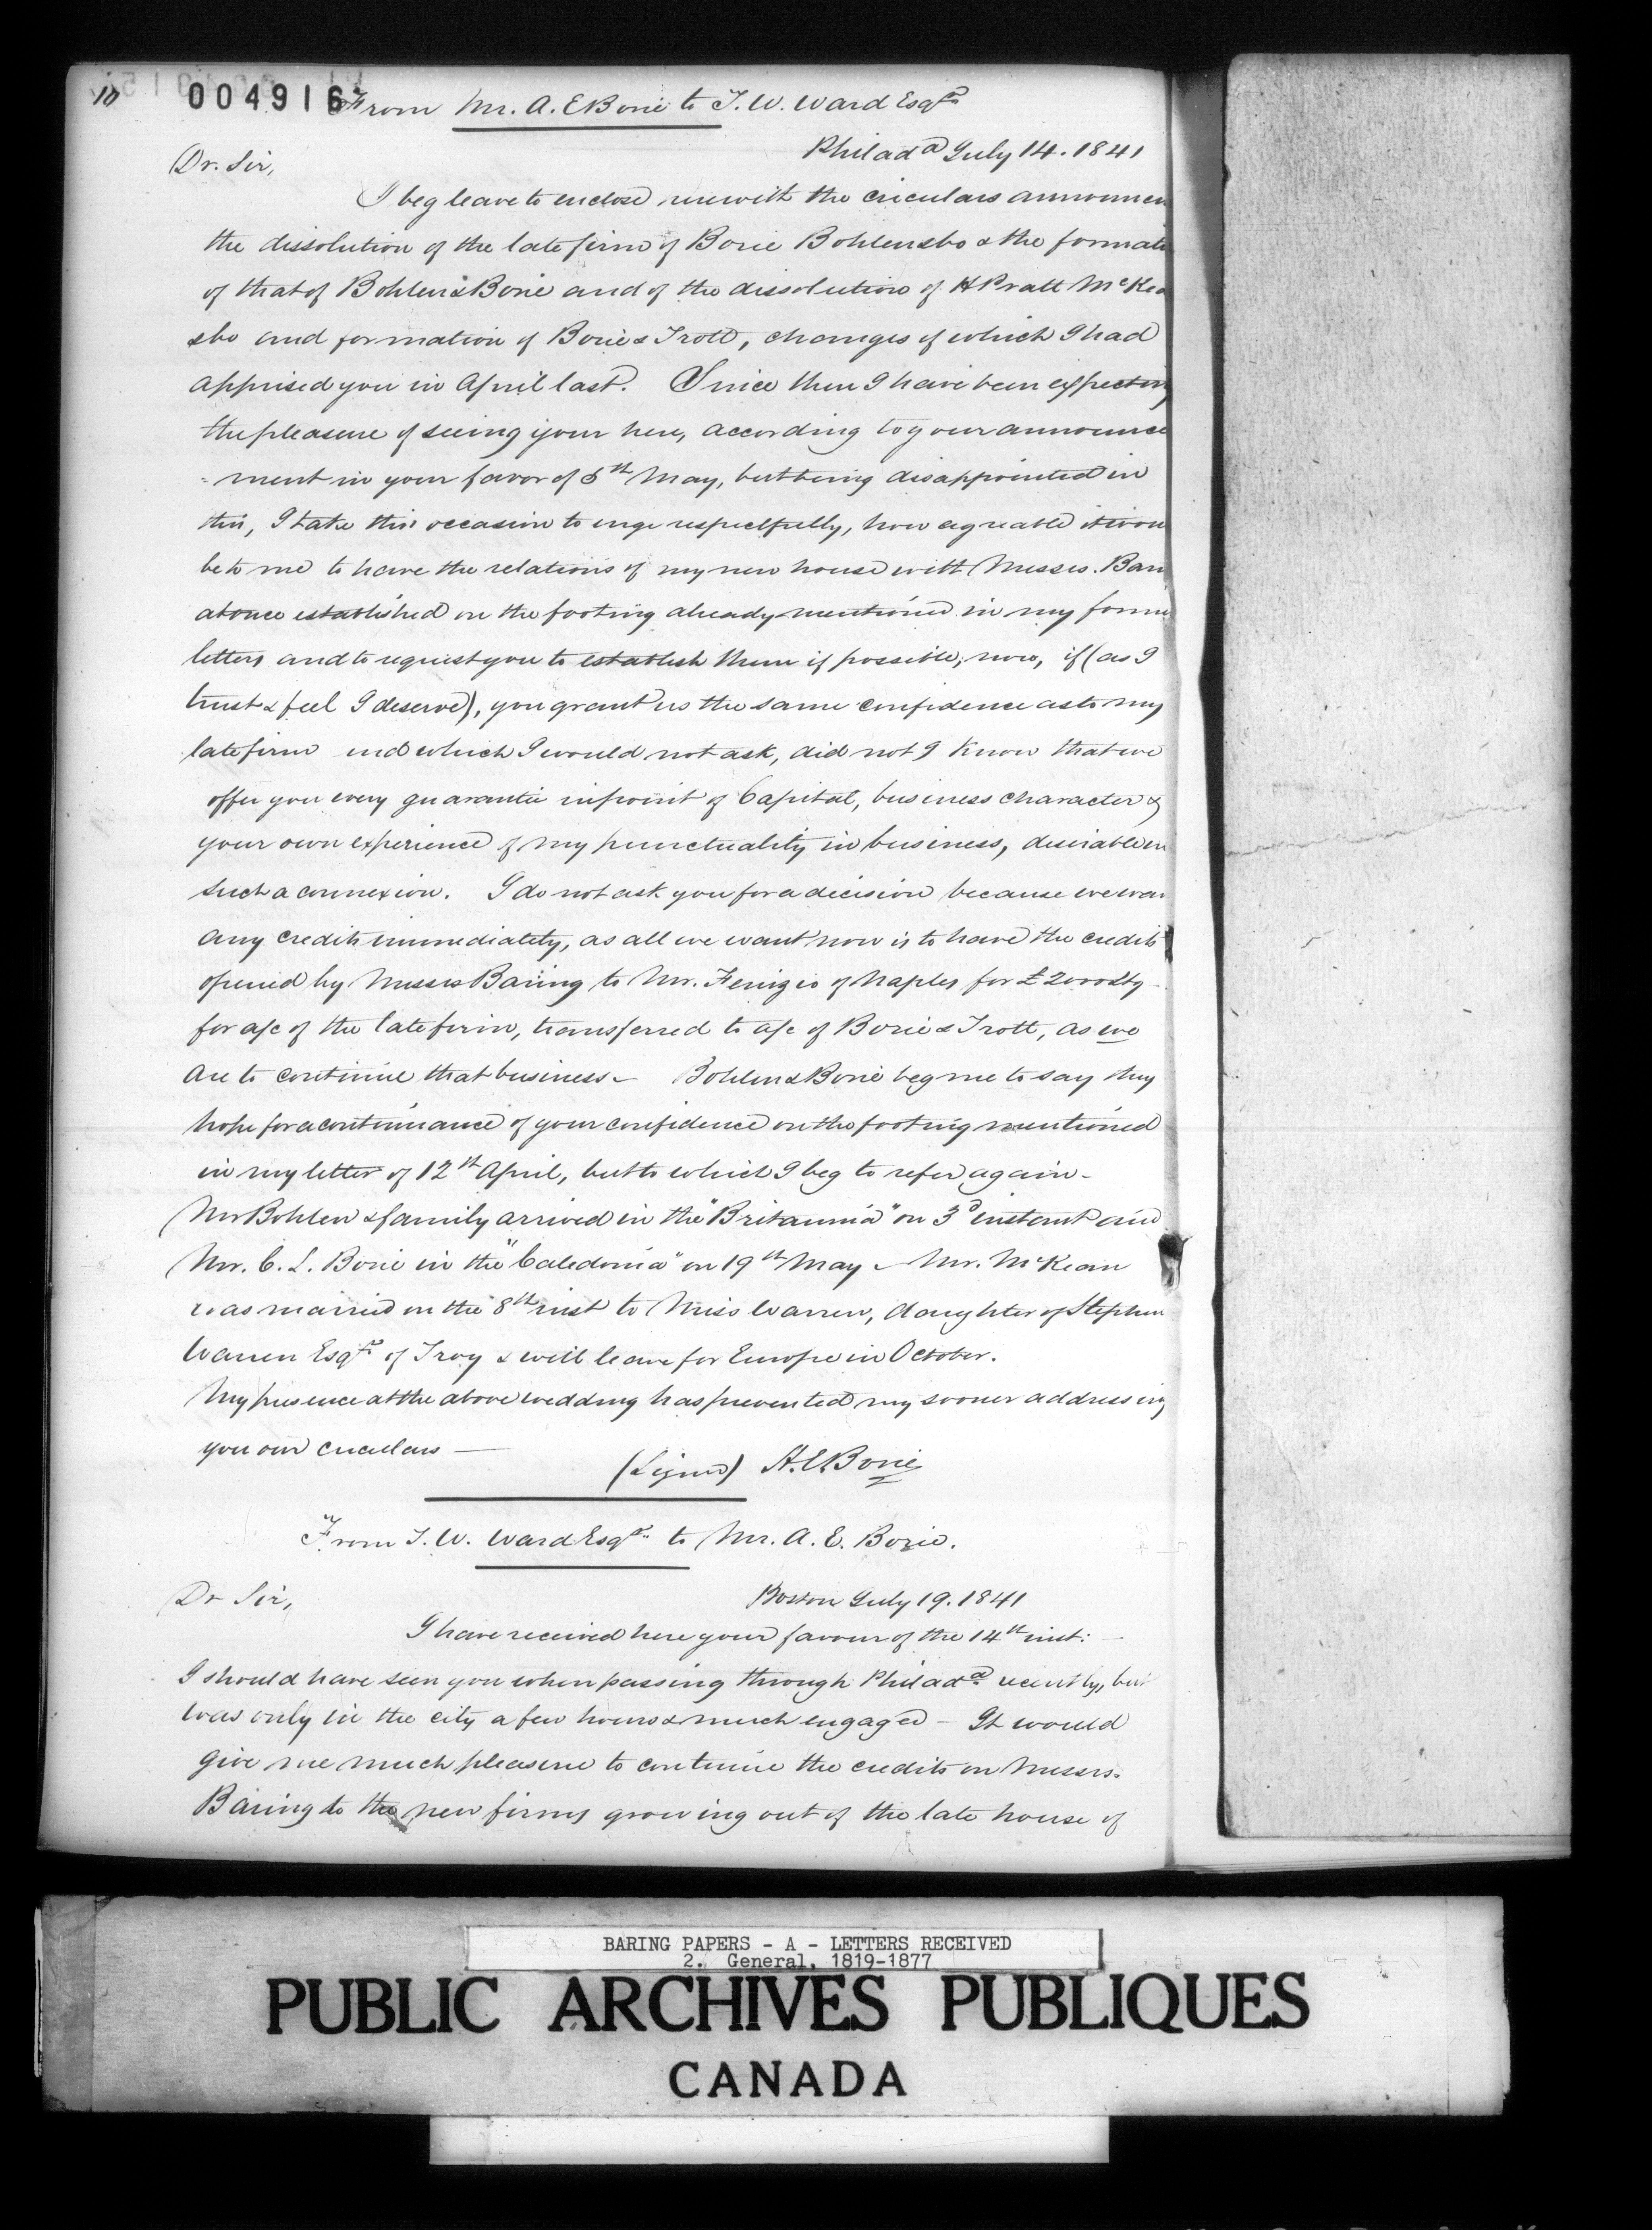 10
004916
From Mr. A. E Borie to T. W. Ward Esqre
Philada July 14. 1841
Dr. Sir,
I beg leave to enclose herewith the circulars announcin
the dissolution of the late firm of Borie Bohlen & Co & the formati
of that of Bohlen & Borie and of the dissolution of H Pratt McKea
& Co and formation of Borie & Trott, changes of which I had
apprised you in April last. Since then I have been expecting
the pleasure of seeing your here, according to your announce
-ment in your favor of 5th May, but being disappointed in
this, I take this occasion to urge respectfully, how agreable it wou
be to me to have the relations of my new house with Messrs. Bari
at once established on the footing already mentioned in my forme
letters and to request you to establish them if possible, now, if (as I
trust & feel I deserve), you grant us the same confidence as to my
late firm and which I would not ask, did not I know that we
offer you every guarantie in point of Capital, business character &
your own experience of my punctuality in business, desirable in
such a connexion. I do not ask you for a decision because we wan
any credits immediately, as all we want now is to have the credits
opened by Messrs Baring to Mr. Fenizio of Naples for £2000 Stg
for a/c of the late firm, transferred to a/c of Borie & Trott, as we
are to continue that business - Bohlen & Borie beg me to say they
hope for a continuance of your confidence on the footing mentioned
in my letter of 12th April, but to which I beg to refer again -
Mr Bohlen & family arrived in the "Britannia" on 3d instant and
Mr. C. L. Borie in the "Caledonia" on 19th May - Mr. McKean
was married on the 8th inst to Miss Warren, daughter of Stephen
Warren Esqre of Troy & will leave for Europe in October.
My presence at the above wedding has prevented my sooner addressing
you our circulars —
(Signed) A. E. Borie
From T. W. Ward Esqre to Mr. A. E. Borie.
Boston July 19. 1841
Dr Sir,
I have received here your favour of the 14th inst: —
I should have seen you when passing through Philada recently, but
was only in the city a few hours & much engaged - It would
give me much pleasure to continue the credits on Messrs.
Baring to the new firms growing out of the late house of
BARING PAPERS - A - LETTERS RECEIVED
2. General, 1819-1877
PUBLIC ARCHIVES PUBLIQUES
CANADA